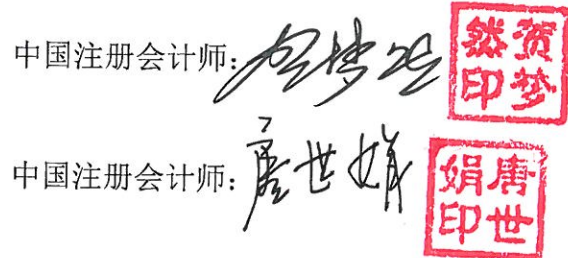 中国注册会计师：贺梦然
贺梦然印
中国注册会计师：唐世娟
唐世娟印